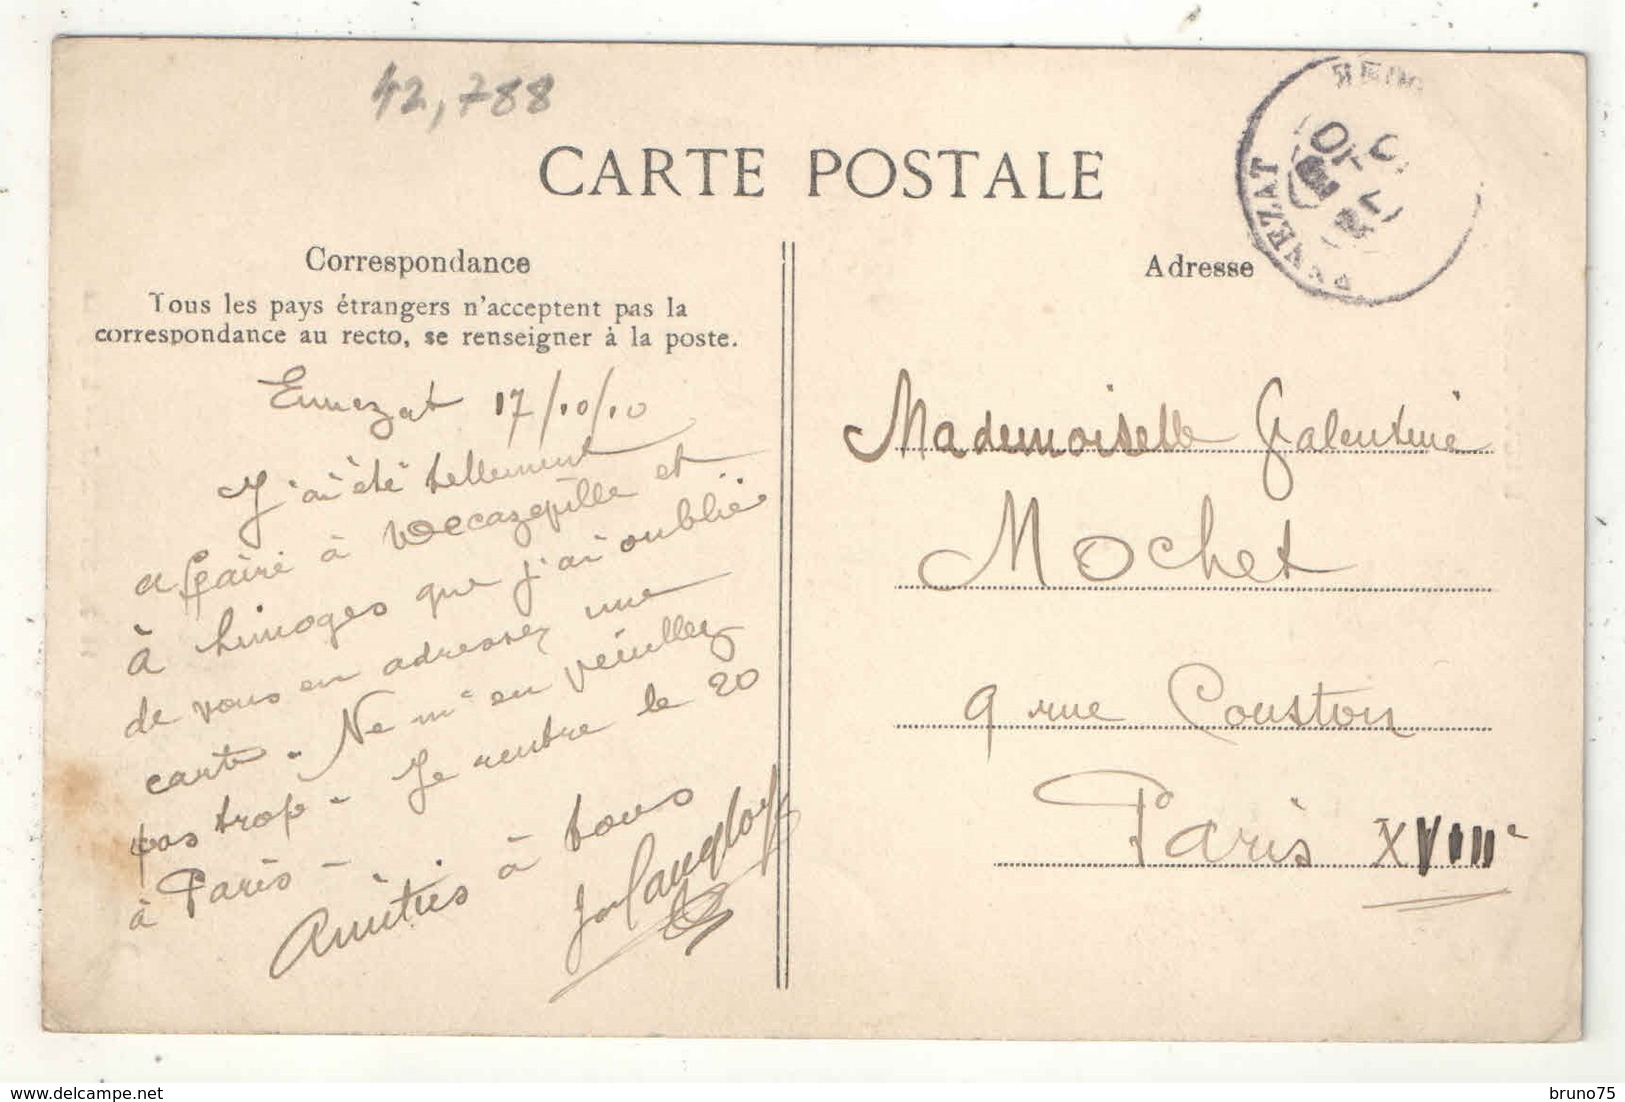 42,788
CARTE POSTALE
Correspondance
Tous les pays étrangers n'acceptent pas la
correspondance au recto, se renseigner à la poste.
Ennezat 17/10/10
J'ai été tellement
affairé à Decazeville et
à Limoges que j'ai oublié
de vous en adresser une
carte. Ne m'en veuillez
pas trop - Je rentre le 20
à Paris -
Amitiés à tous
Langlois
Adresse
Mademoiselle Valentine
Mochet
9 rue Couston
Paris XVIIIe
ENNEZAT
delcampe.net
bruno75